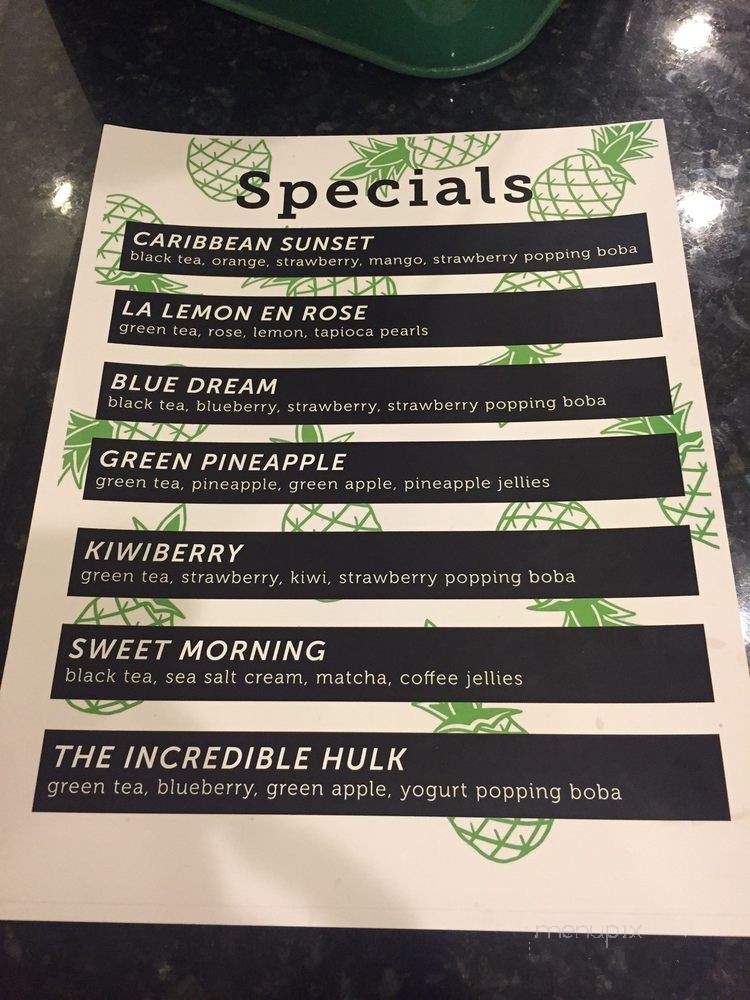 Specials
CARIBBEAN SUNSET
black tea, orange, strawberry, mango, strawberry popping boba
LA LEMON EN ROSE
green tea, rose, lemon, tapioca pearls
BLUE DREAM
black tea, blueberry, strawberry, strawberry popping boba
GREEN PINEAPPLE
green tea, pineapple, green apple, pineapple jellies
KIWIBERRY
green tea, strawberry, kiwi, strawberry popping boba
SWEET MORNING
black tea, sea salt cream, matcha, coffee jellies
THE INCREDIBLE HULK
green tea, blueberry, green apple, yogurt popping boba
menupix